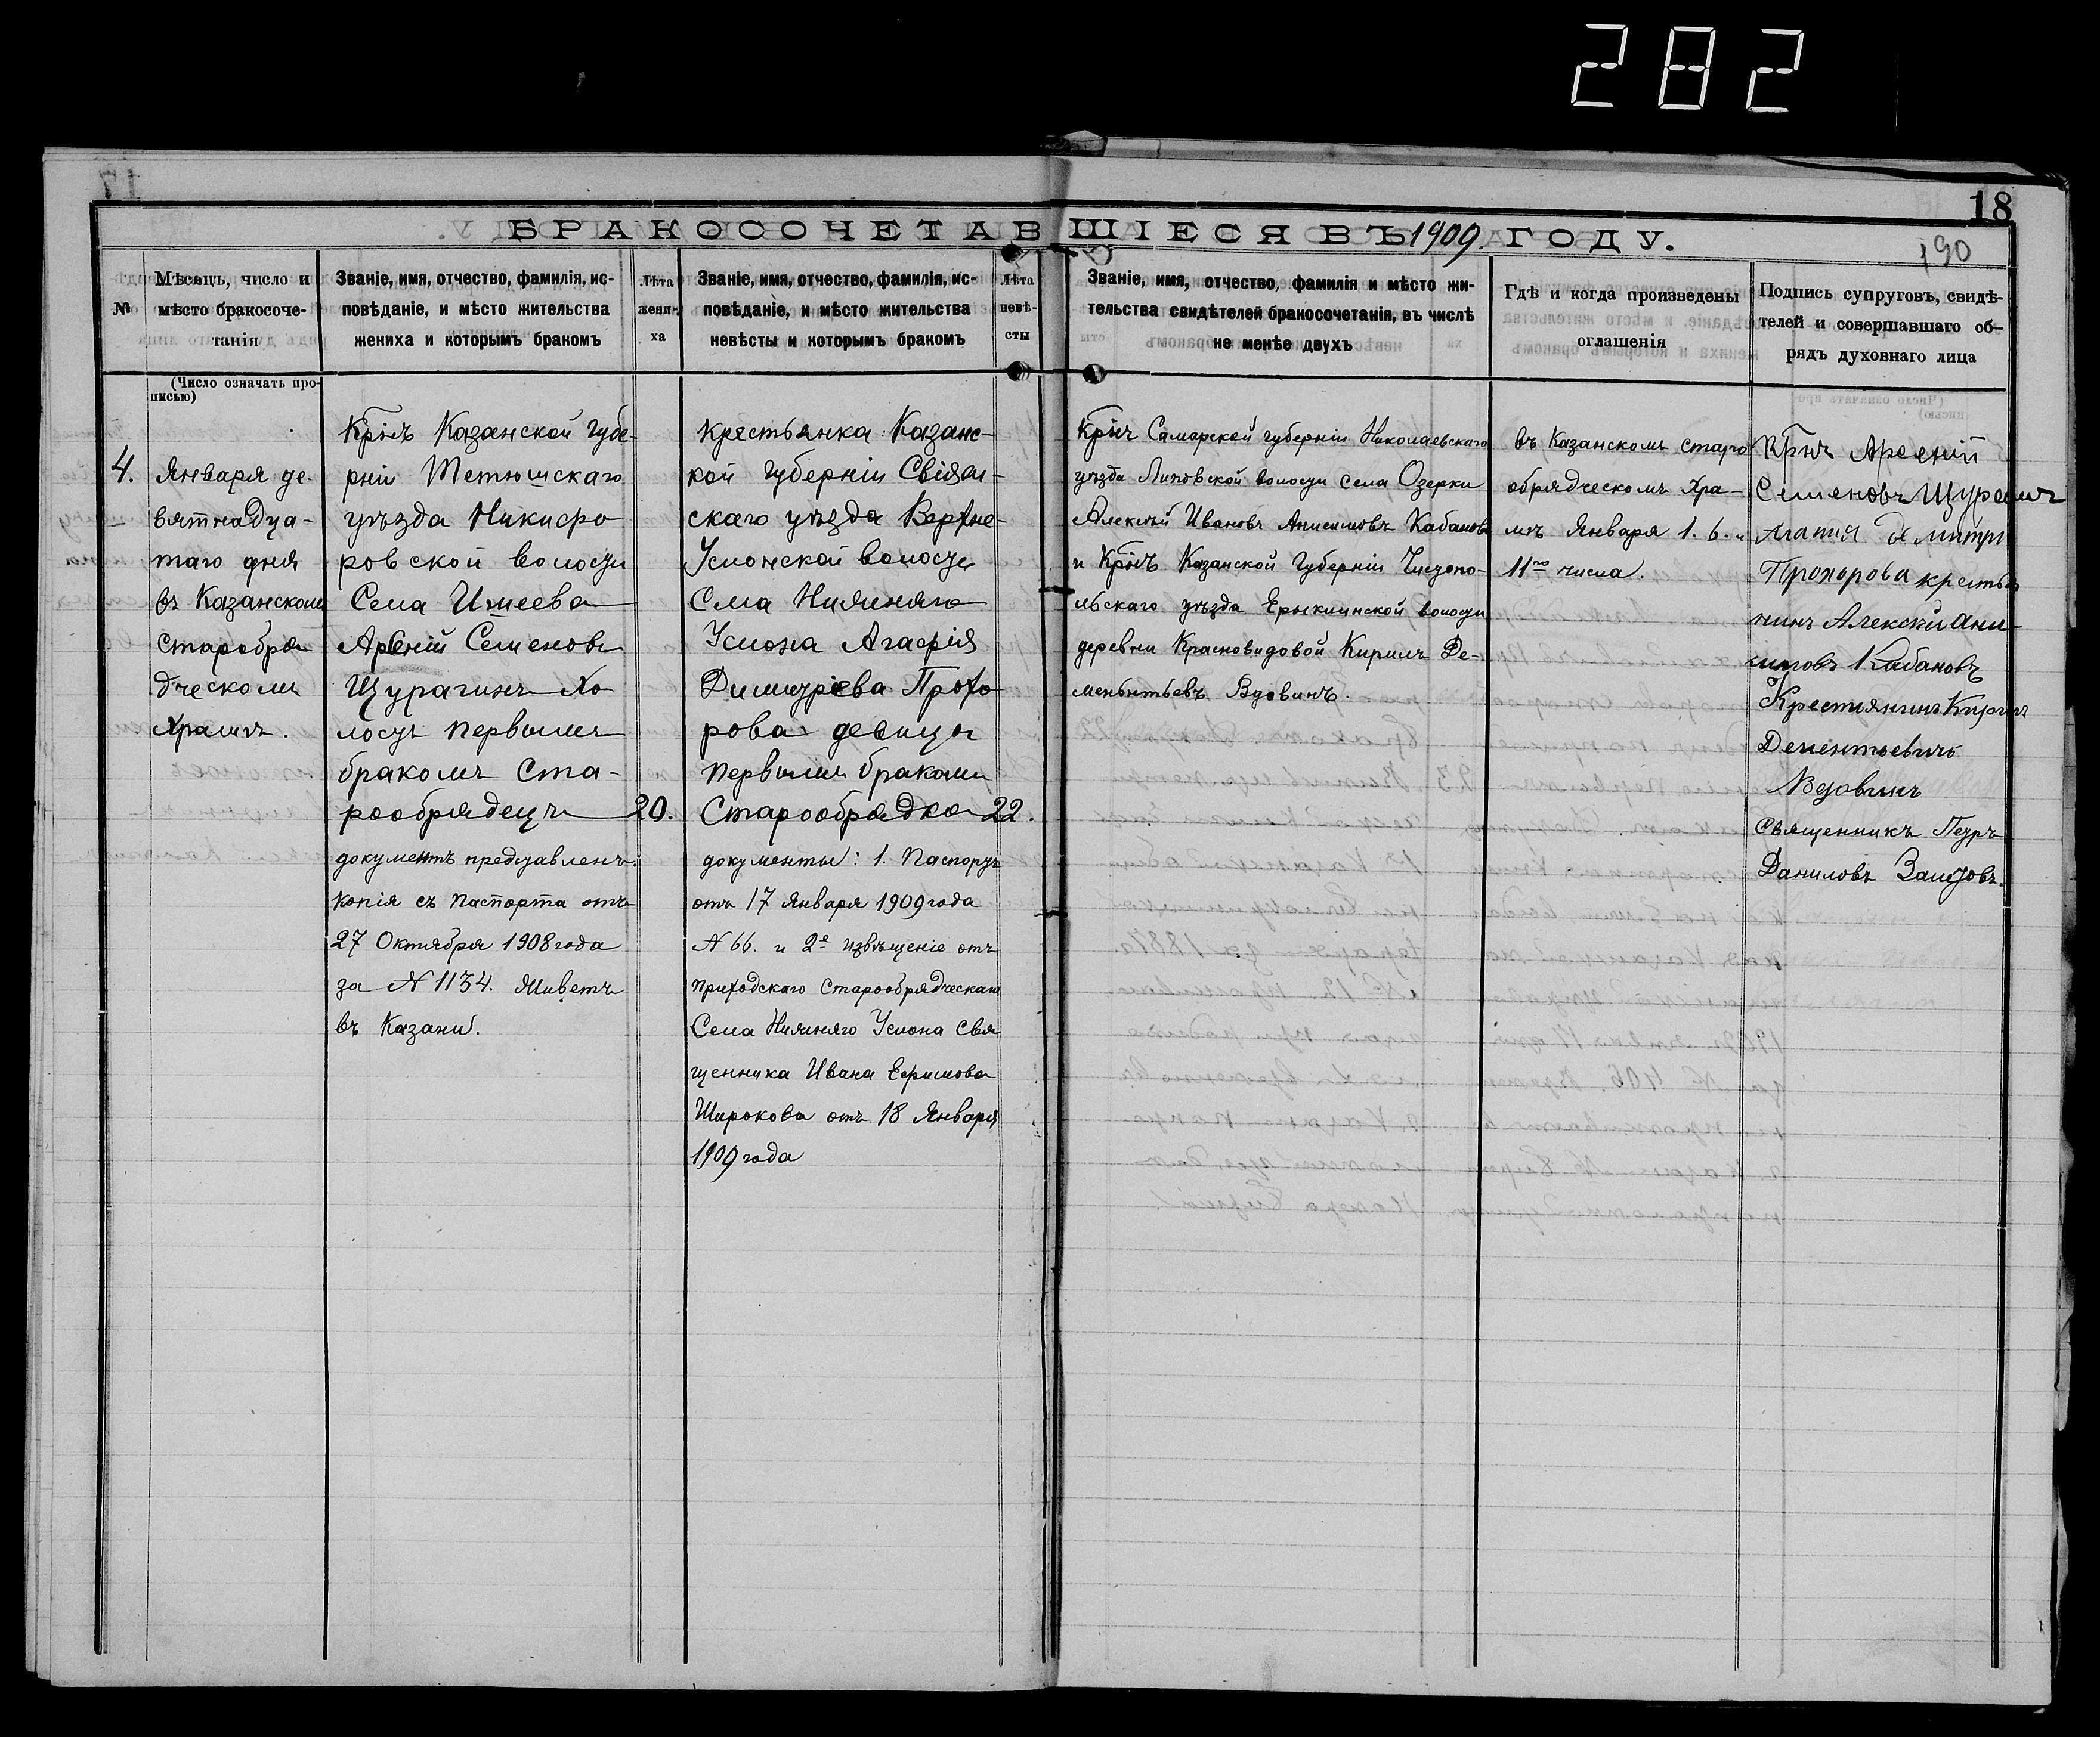 282
18
190
БРАКОСОЧЕТАВШІЕСЯ ВЪ 1909 ГОДУ.
№
Мѣсяцъ, число и
мѣсто бракосоче-
танія
Званіе, имя, отчество, фамилія, ис-
повѣданіе, и мѣсто жительства
жениха и которымъ бракомъ
Лѣта
жени-
ха
Званіе, имя, отчество, фамилія, ис-
повѣданіе, и мѣсто жительства
невѣсты и которымъ бракомъ
Лѣта
невѣ-
сты
Званіе, имя, отчество, фамилія и мѣсто жи-
тельства свидѣтелей бракосочетанія, въ числѣ
не менѣе двухъ
Гдѣ и когда произведены
оглашенія
Подпись супруговъ, свидѣ-
телей и совершавшаго об-
рядъ духовнаго лица
(Число означать про-
писью)
4.
Января де-
вятнадца-
таго дня
въ Казанскомъ
Старобря
дческомъ
Храмѣ.
Крнъ Казанской губе-
рніи Тетюшскаго
уѣзда Никифо
ровской волости
Села Ижеева
Арсеній Семеновъ
Щурагинъ Хо
лостъ первымъ
бракомъ Ста-
рообрядецъ
20.
документъ представленъ:
копія съ паспорта отъ
27 Октября 1908 года
за № 1134. Живетъ
въ Казани.
крестьянка Казанс-
кой губерніи Свіяж-
скаго уѣзда Верхне-
Услонской волости
Села Нижняго
Услона Агафія
Димитріева Прохо
рова девица
первымъ бракомъ
Старообрядка
22.
документы: 1. Паспортъ
отъ 17 Января 1909 года
№ 66. и 2е извѣщеніе отъ
приходскаго Старообрядческаго
Села Нижняго Услона свя
щенника Ивана Ефимова
Широкова отъ 18 Января
1909 года
Крнъ Самарской губерніи Николаевскаго
уѣзда Липовской волости села Озерки
Алексѣй Ивановъ Анисимовъ Кабановъ
и Крнъ Казанской Губерніи Чистопо-
льскаго уѣзда Ерыклинской волости
деревни Красновидовой Кирилъ Де-
ментьевъ Вдовинъ.
въ Казанскомъ старо
обрядческомъ Хра-
мѣ Января 1. 6. и
11го числа.
Крнъ Арсеній
Семеновъ
Агапия Дмитри
Прохорова крестья
нинъ Алексѣй Ани-
симовъ Кабановъ
Крестиянинъ Кирилъ
Дементьевичъ
Вдовинъ
Священникъ Петръ
Даниловъ Залетовъ.